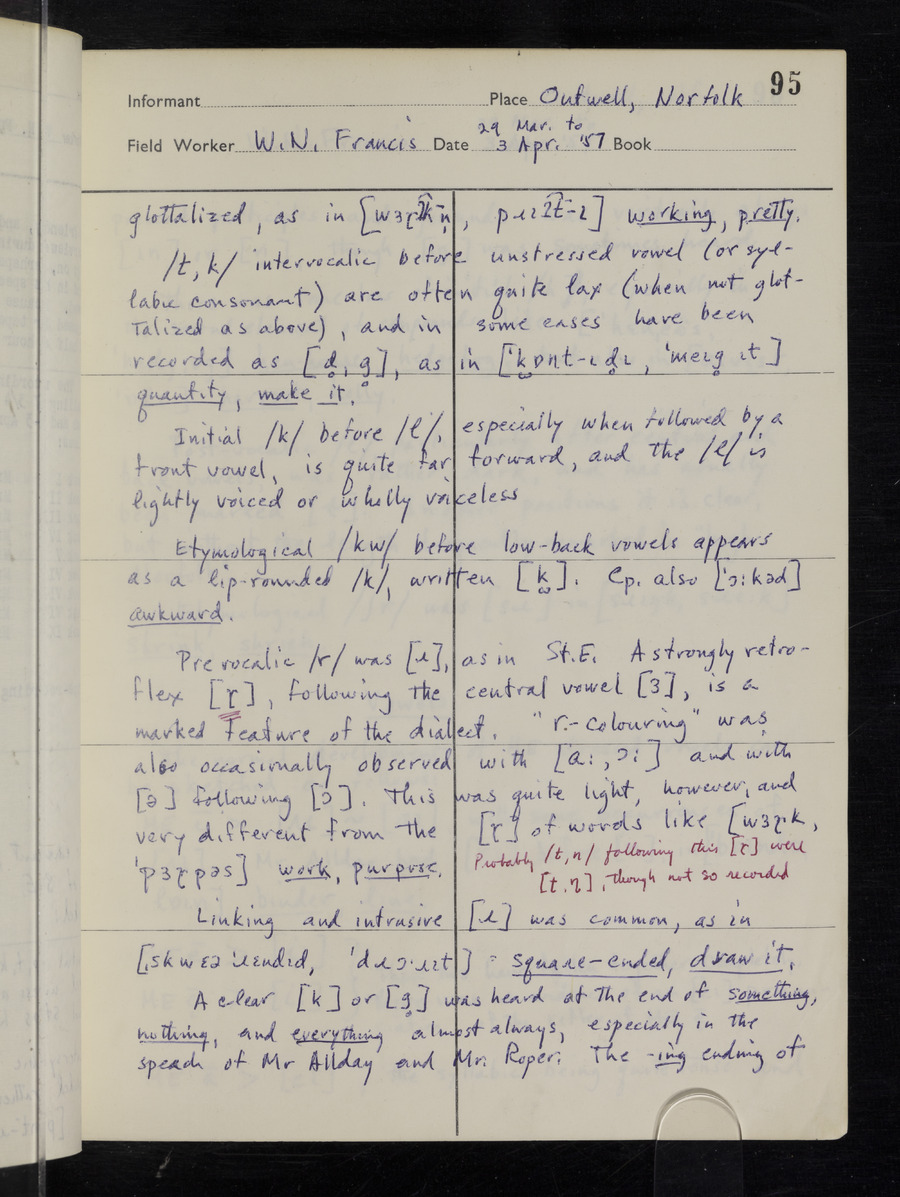 95
Informant Place Outwell, Norfolk
Field Worker W.N. Francis Date 29 Mar. to 3 Apr. '57 Book
glottalized, as in [wɜɽʔk̩n̩, pɹɪʔt-ɪ] working, pretty.
/t, k/ intervocalic before unstressed vowel (or syl-
labic consonant) are often quite lax (when not glot-
talized as above), and in some cases have been
recorded as [d̥, g̊], as in ['k̫ɒnt-ɪd̥ɪ, 'meɪg̊ ɪt]
quantity, make it.
Initial /k/ before /l/, especially when followed by a
front vowel, is quite far forward, and the /l/ is
lightly voiced or wholly voiceless
Etymological /kw/ before low-back vowels appears
as a lip-rounded /k/, written [k̫]. Cp. also ['ɔ:kəd]
awkward.
Prevocalic /r/ was [ɹ], as in St.E. A strongly retro-
flex [ɽ], following the central vowel [ɜ], is a
marked feature of the dialect. "r-colouring" was
also occasionally observed with [ɑ:, ɔ:] and with
[ə] following [ɔ]. This was quite light, however, and
very different from the [ɽ] of words like [wɜɽk,
'pɜɽpəs] work, purpose.
Probably /t, n/ following this [ɽ] were
[ʈ, ɳ], though not so recorded
Linking and intrusive [ɹ] was common, as in
[ˌskwɛə 'ɹɛndɪd, 'dɹɔ·ɹɪt] = square-ended, draw it.
A clear [k] or [g̊] was heard at the end of something,
nothing, and everything almost always, especially in the
speech of Mr Allday and Mr. Roper. The -ing ending of